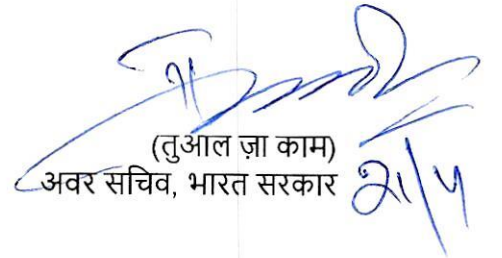 (तुआल ज़ा काम)
अवर सचिव, भारत सरकार
२१/५